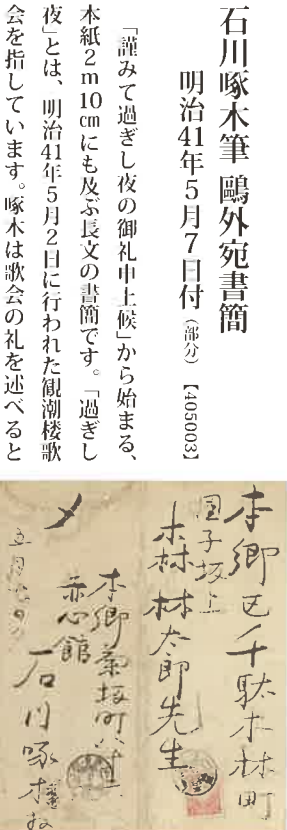 石川啄木筆 鷗外宛書簡
明治41年5月7日付（部分）【405003】
「謹みて過ぎし夜の御礼申上候」から始まる、
本紙2m10㎝にも及ぶ長文の書簡です。「過ぎし
夜」とは、明治41年5月2日に行われた観潮楼歌
会を指しています。啄木は歌会の礼を述べると
本郷区千駄木林町
団子坂上
森林太郎先生
本郷菊坂町八十二
赤心館
石川啄木
五月七日
〆